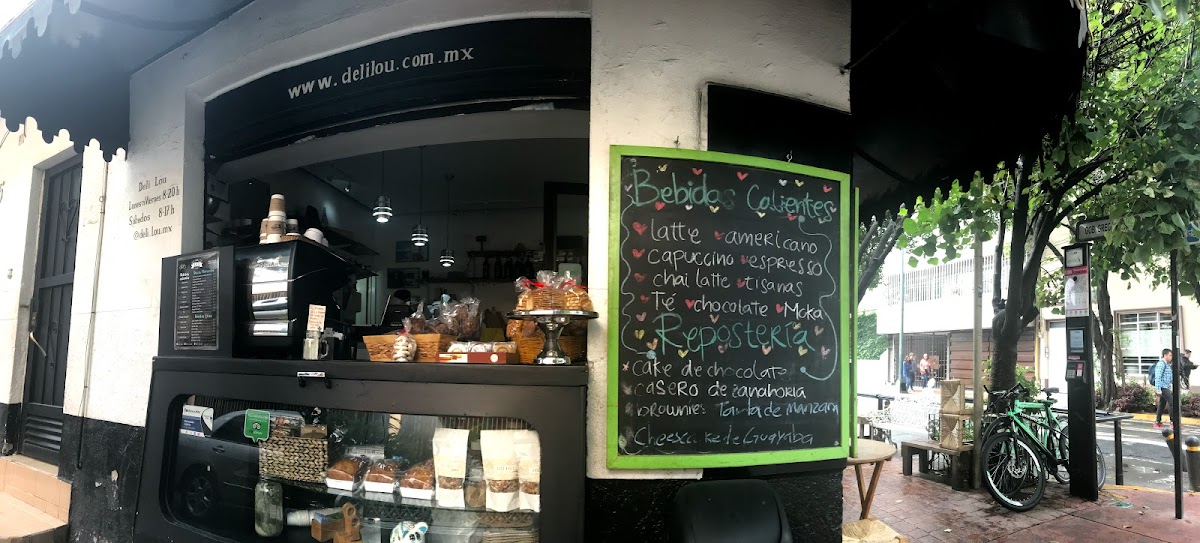 www.delilou.com.mx
Deli Lou
Lunes a Viernes 8-20 h
Sábados 8-17 h
@deli.lou.mx
Bebidas Calientes
latte americano
capuccino espresso
chai latte tisanas
Té chocolate Moka
Repostería
cake de chocolate
casero de zanahoria
brownies Tarta de Manzana
Cheescake de Guayaba